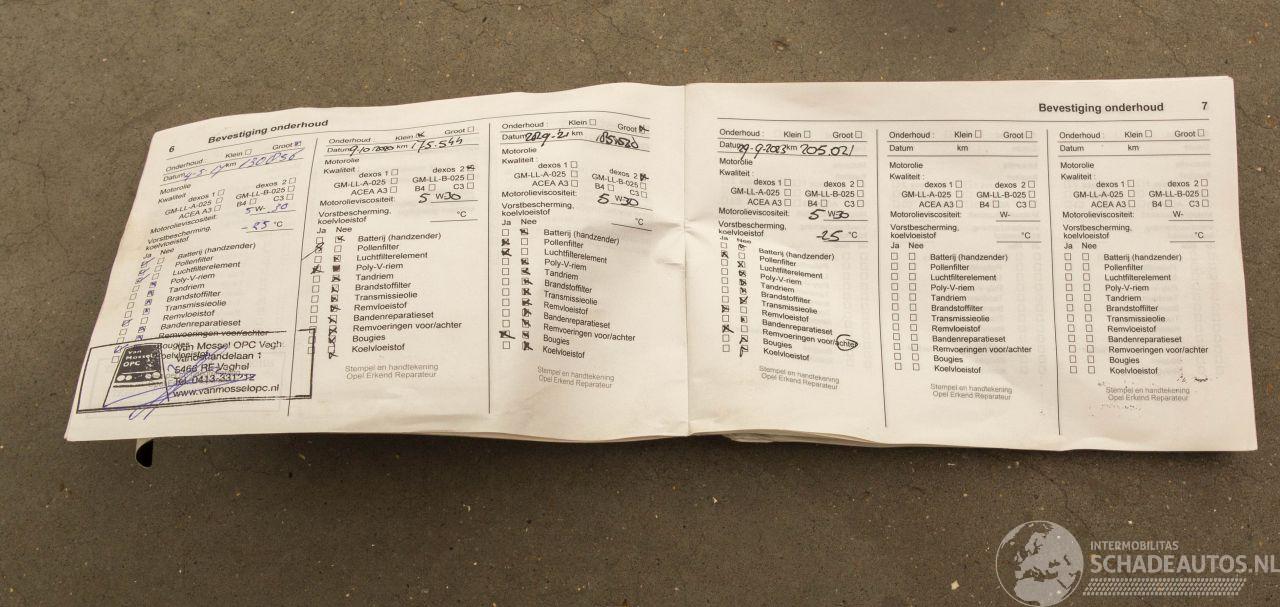 6
Bevestiging onderhoud
Onderhoud : Klein Groot
Datum km 130856
Motorolie
Kwaliteit
dexos 1 dexos 2
GM-LL-A-025 GM-LL-B-025
ACEA A3 B4 C3
Motorolieviscositeit: 5 W- 30
Vorstbescherming,
koelvloeistof -25 °C
Ja Nee
Batterij (handzender)
Pollenfilter
Luchtfilterelement
Poly-V-riem
Tandriem
Brandstoffilter
Transmissieolie
Remvloeistof
Bandenreparatieset
Remvoeringen voor/achter
Bougies
Koelvloeistof
van Mossel OPC
Van Mossel OPC Vegh
5466 RE Veghel
www.vanmosselopc.nl
Onderhoud : Klein Groot
Datum 9-10-2020 km 175.544
Motorolie
Kwaliteit :
dexos 1 dexos 2
GM-LL-A-025 GM-LL-B-025
ACEA A3 B4 C3
Motorolieviscositeit: 5 W30
Vorstbescherming,
koelvloeistof °C
Ja Nee
Batterij (handzender)
Pollenfilter
Luchtfilterelement
Poly-V-riem
Tandriem
Brandstoffilter
Transmissieolie
Remvloeistof
Bandenreparatieset
Remvoeringen voor/achter
Bougies
Koelvloeistof
Stempel en handtekening
Opel Erkend Reparateur
Onderhoud : Klein Groot
Datum km
Motorolie
Kwaliteit :
dexos 1 dexos 2
GM-LL-A-025 GM-LL-B-025
ACEA A3 B4 C3
Motorolieviscositeit: 5 W30
Vorstbescherming,
koelvloeistof °C
Ja Nee
Batterij (handzender)
Pollenfilter
Luchtfilterelement
Poly-V-riem
Tandriem
Brandstoffilter
Transmissieolie
Remvloeistof
Bandenreparatieset
Remvoeringen voor/achter
Bougies
Koelvloeistof
Stempel en handtekening
Opel Erkend Reparateur
Bevestiging onderhoud 7
Onderhoud : Klein Groot
Datum 29-9-2023 km 205.021
Motorolie
Kwaliteit :
dexos 1 dexos 2
GM-LL-A-025 GM-LL-B-025
ACEA A3 B4 C3
Motorolieviscositeit: 5 W30
Vorstbescherming,
koelvloeistof -25 °C
Ja Nee
Batterij (handzender)
Pollenfilter
Luchtfilterelement
Poly-V-riem
Tandriem
Brandstoffilter
Transmissieolie
Remvloeistof
Bandenreparatieset
Remvoeringen voor/achter
Bougies
Koelvloeistof
Stempel en handtekening
Opel Erkend Reparateur
Onderhoud : Klein Groot
Datum km
Motorolie
Kwaliteit :
dexos 1 dexos 2
GM-LL-A-025 GM-LL-B-025
ACEA A3 B4 C3
Motorolieviscositeit: W-
Vorstbescherming,
koelvloeistof °C
Ja Nee
Batterij (handzender)
Pollenfilter
Luchtfilterelement
Poly-V-riem
Tandriem
Brandstoffilter
Transmissieolie
Remvloeistof
Bandenreparatieset
Remvoeringen voor/achter
Bougies
Koelvloeistof
Stempel en handtekening
Opel Erkend Reparateur
Onderhoud : Klein Groot
Datum km
Motorolie
Kwaliteit :
dexos 1 dexos 2
GM-LL-A-025 GM-LL-B-025
ACEA A3 B4 C3
Motorolieviscositeit: W-
Vorstbescherming,
koelvloeistof °C
Ja Nee
Batterij (handzender)
Pollenfilter
Luchtfilterelement
Poly-V-riem
Tandriem
Brandstoffilter
Transmissieolie
Remvloeistof
Bandenreparatieset
Remvoeringen voor/achter
Bougies
Koelvloeistof
Stempel en handtekening
Opel Erkend Reparateur
INTERMOBILITAS
SCHADEAUTOS.NL